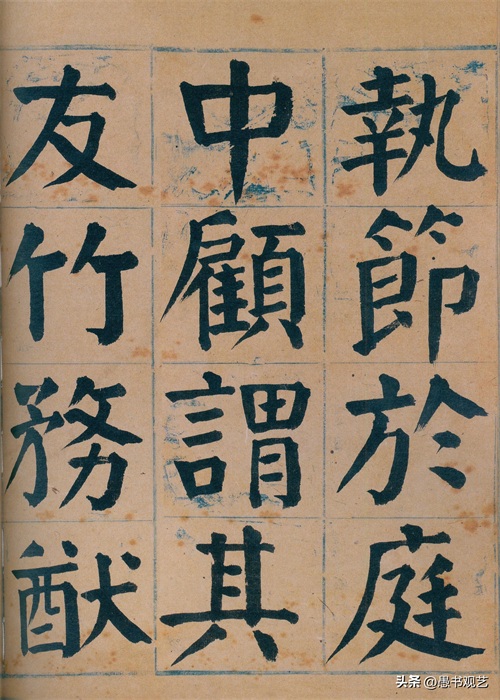 執節於庭
中顧謂其
友竹務猷
头条 @愚书观艺